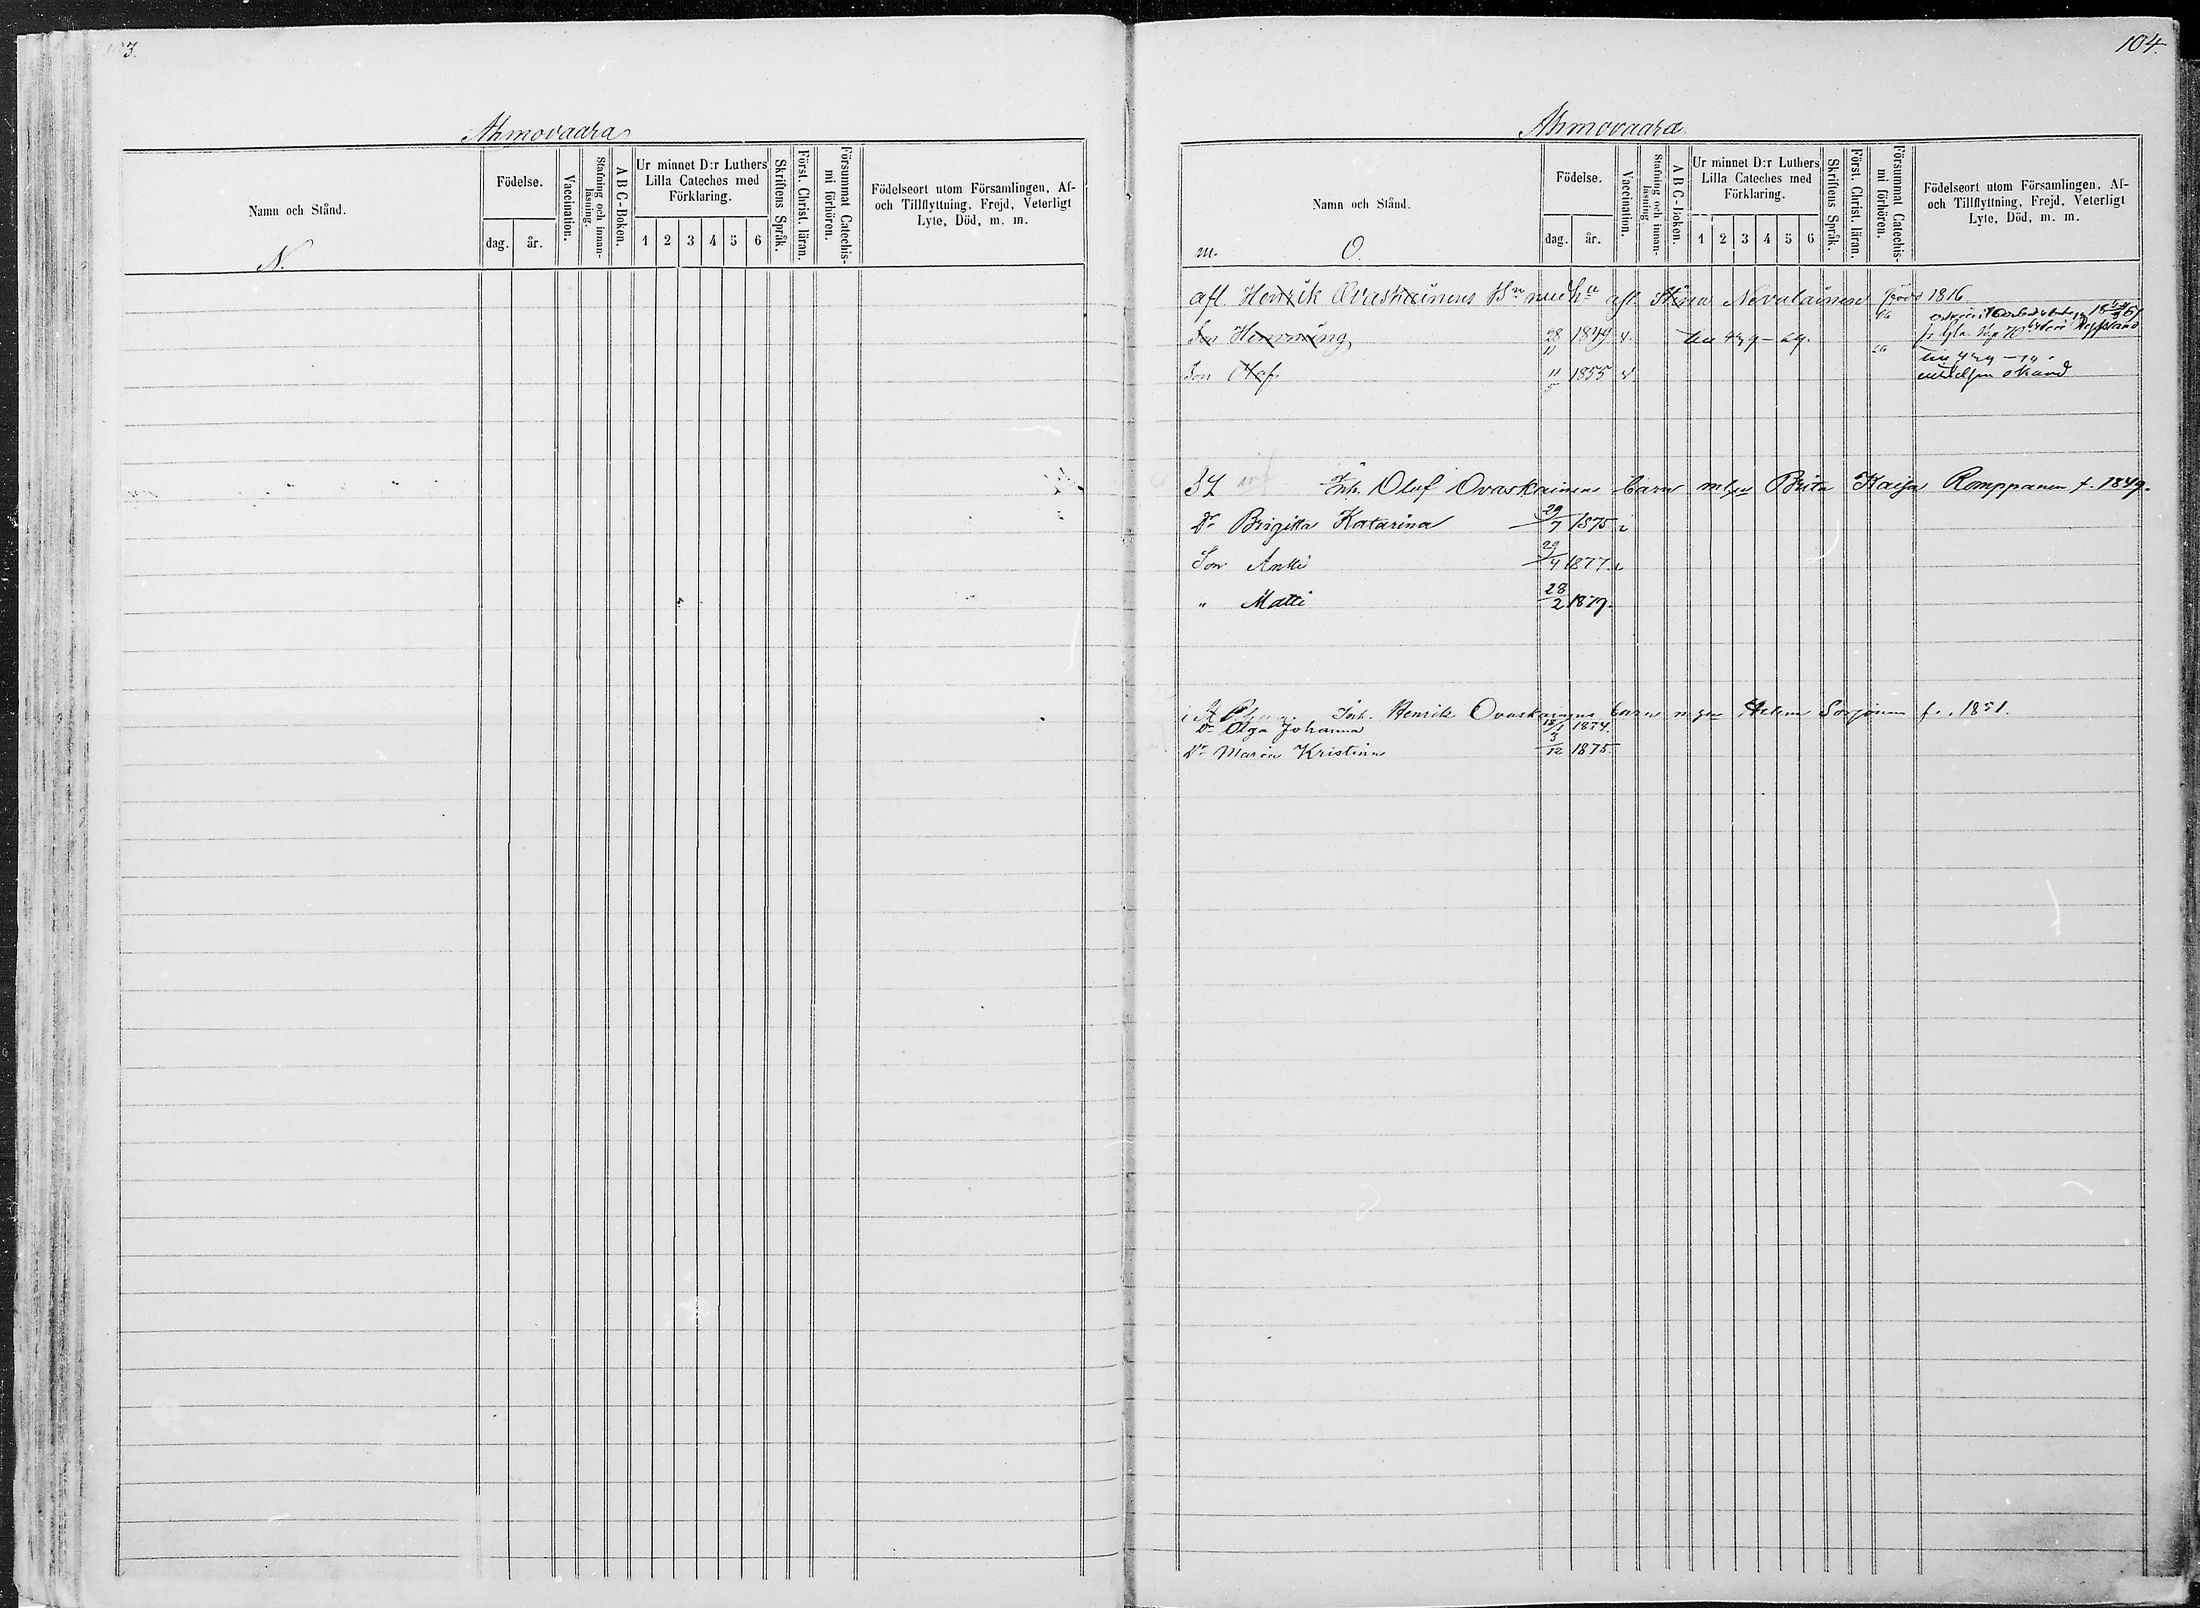 3.
Ahmovaara
Namn och Stånd.
N.
Födelse.
dag. år.
Vaccination.
Stafning och innan-läsning.
A B C-Boken.
Ur minnet D:r Luthers Lilla Cateches med Förklaring.
1 2 3 4 5 6
Skriftens Språk.
Först. Christ. läran.
Försummat Catechis-mi förhören.
Födelseort utom Församlingen, Af- och Tillflyttning, Frejd, Veterligt Lyte, Död, m. m.
104.
Ahmovaara
Namn och Stånd.
m. O.
Födelse.
dag. år.
Vaccination.
Stafning och innan-läsning
A B C-Boken.
Ur minnet D:r Luthers Lilla Cateches med Förklaring.
1 2 3 4 5 6
Skriftens Språk.
Först. Christ. läran.
Försummat Catechis-mi förhören.
Födelseort utom Församlingen, Af- och Tillflyttning, Frejd, Veterligt Lyte, Död, m. m.
afl. Henrik Ovaskainens Bn med hu afl. Stina Nevalainen född 1816
Son Hemming 28/11 1849 v.
Son Olof 11/5 1855 v
37 Inh. Olof Ovaskainens barn Brita Kaisa Romppanen f. 1849.
Dr Brigitta Katarina 29/7 1875 v
Son Antti 29/4 1877 v
" Matti 28/2 1879.
Inh. Henrik Ovaskainens barn Helena Sorjonen f. 1851.
Dr Olga Johanna 1874.
Dr Maria Kristina 3/12 1875.